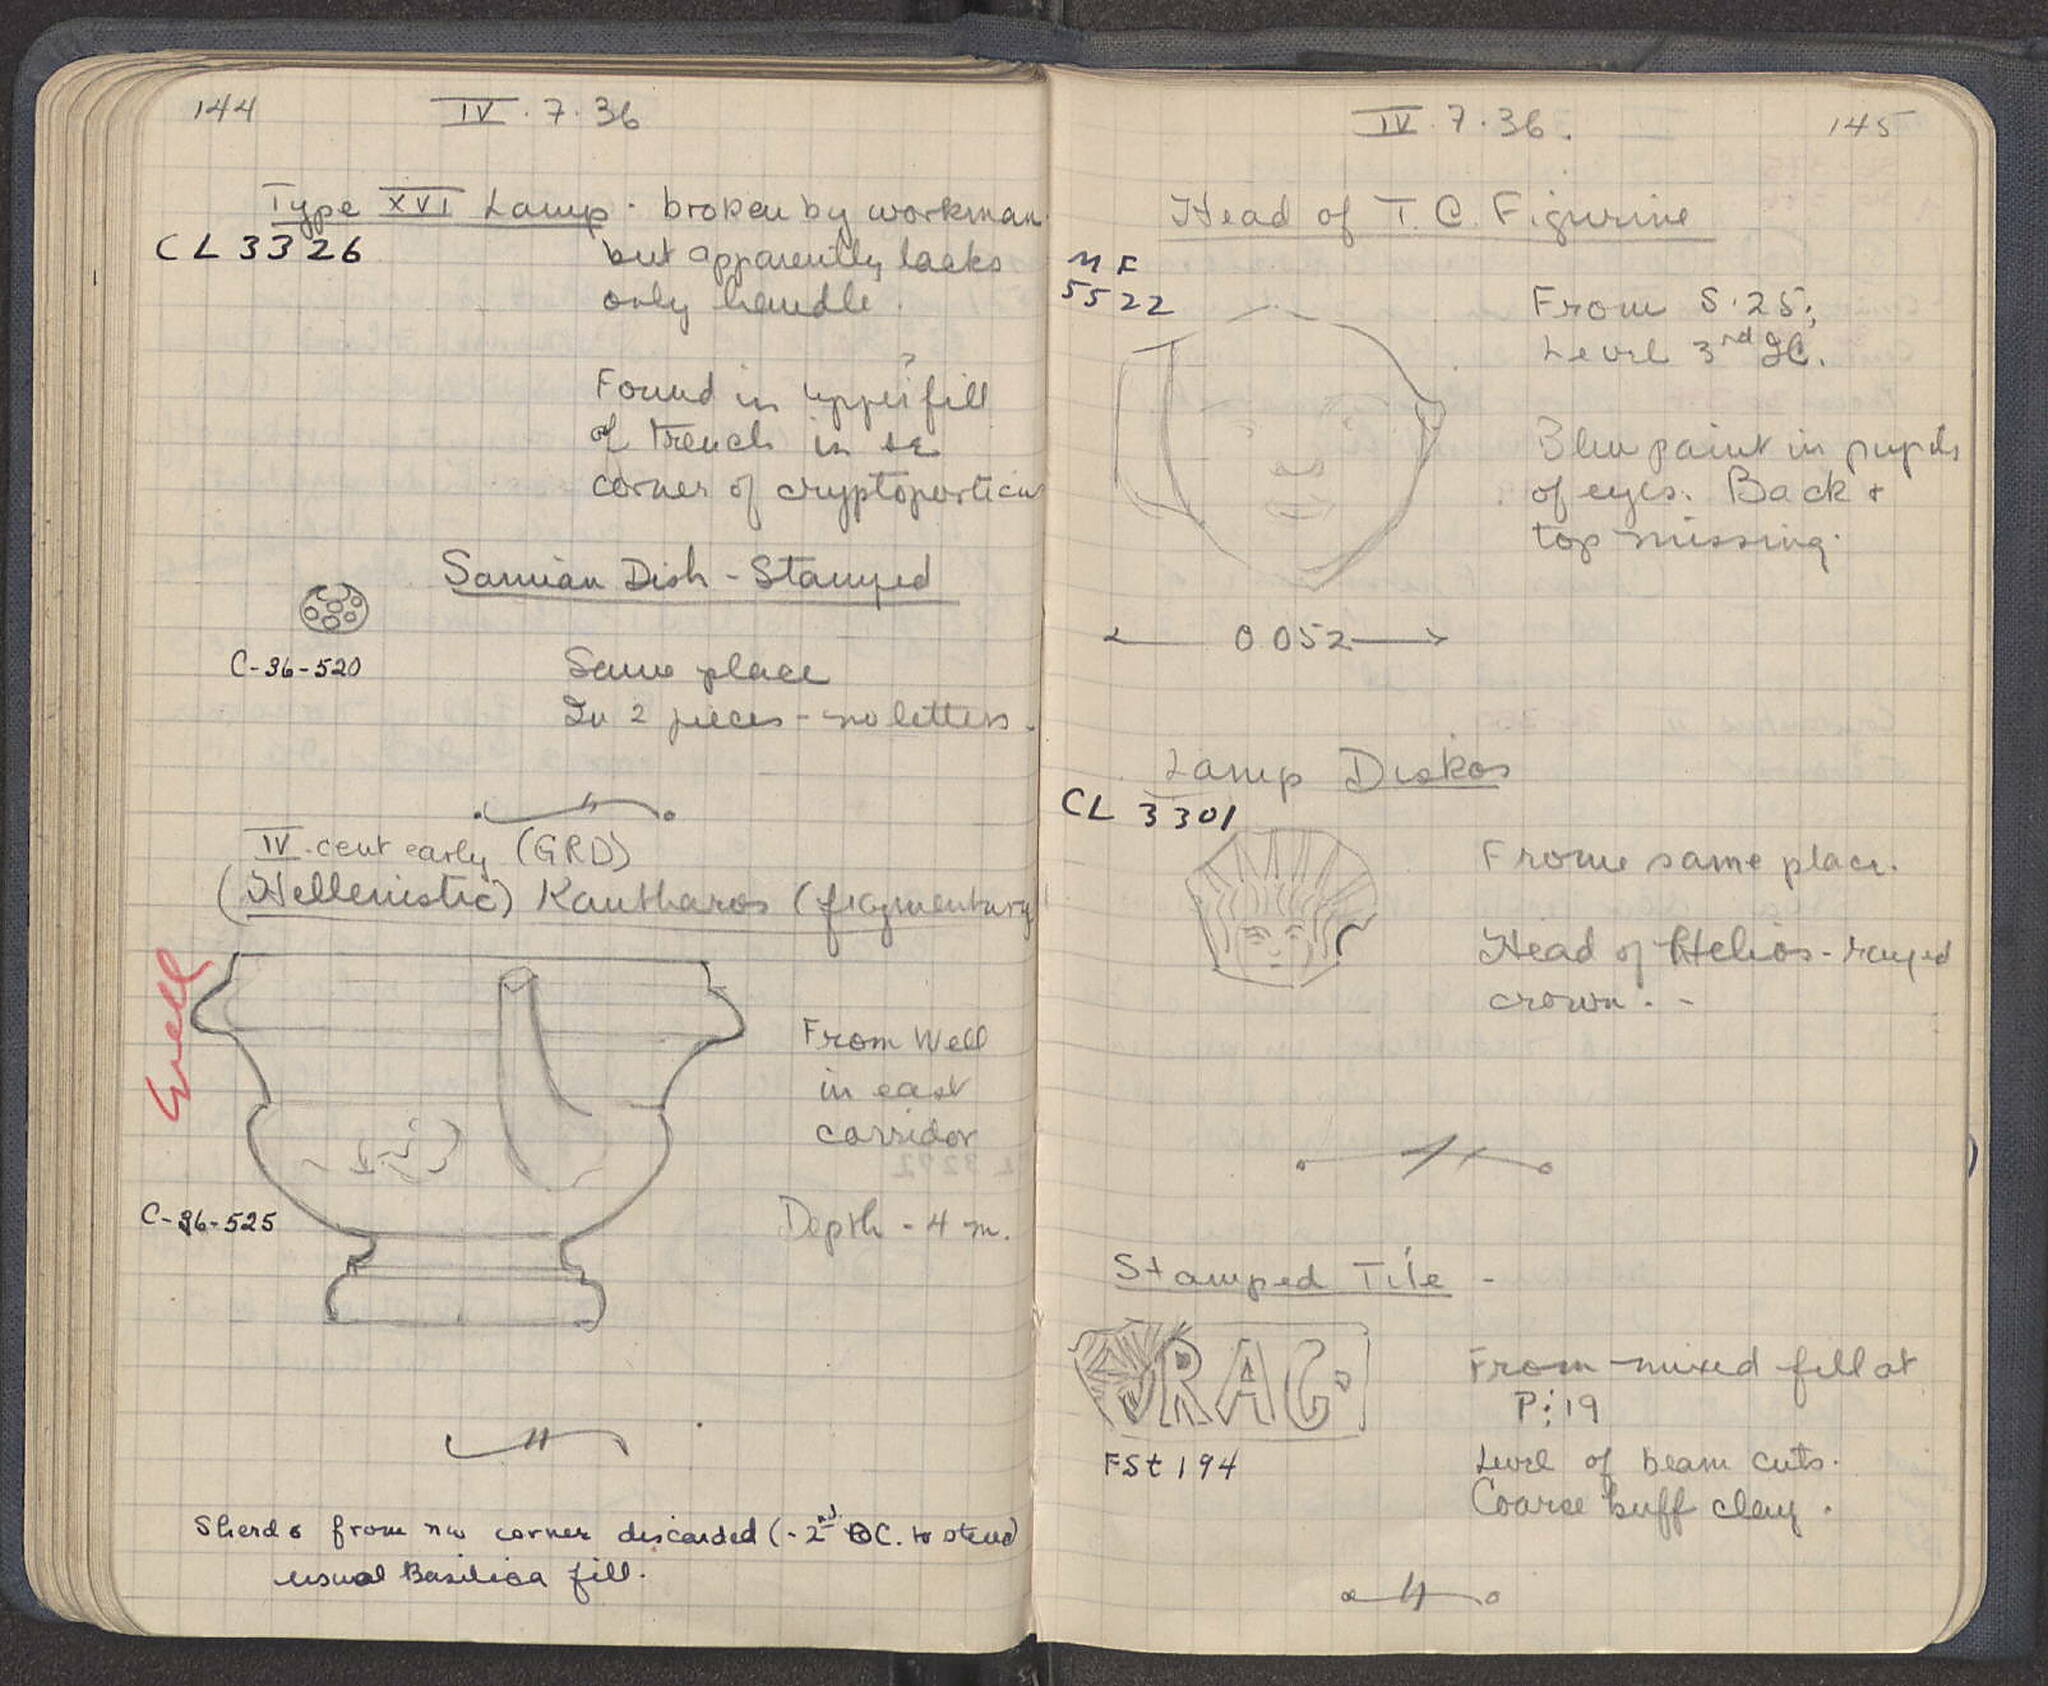 144
IV . 7 . 36
Type XVI Lamp - broken by workman
CL 3326
but apparently lacks
only handle.
?
Found in upper fill
of trench in se
corner of cryptoporticus
Samian Dish - Stamped
C-36-520
Same place
In 2 pieces - no letters.
IV cent early (GRD)
(Hellenistic) Kantharos (fragmentary
Well
From Well
in east
corridor
C-36-525
Depth - 4 m.
Sherds from nw corner discarded (- 2nd C. to
usual Basilica fill.
IV . 7 . 36 .
145
Head of T.C. Figurine
MF
5522
From S:25;
Level 3rd
Blue paint in pupils
of eyes. Back +
top missing.
0.052
Lamp Diskos
CL 3301
From same place.
Head of Helios - rayed
crown. -
Stamped Tile -
RAG
From mixed fill at
P:19
FSt 194
Level of beam cuts.
Coarse buff clay.